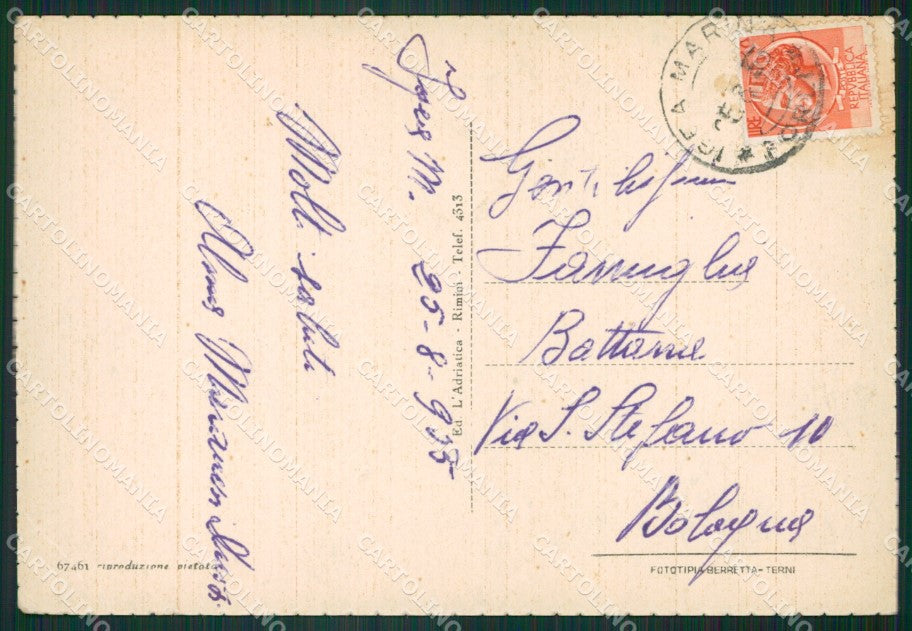 Igea M. 25-8-955
Molti saluti
Gentilissima
Famiglia
Via S. Stefano 10
Bologna
Ed. L'Adriatica - Rimini - Telef. 4313
67461 riproduzione vietata
FOTOTIPIA BERRETTA - TERNI
IGEA MARINA
REPVBBLICA
ITALIANA
LIRE
CARTOLINOMANIA